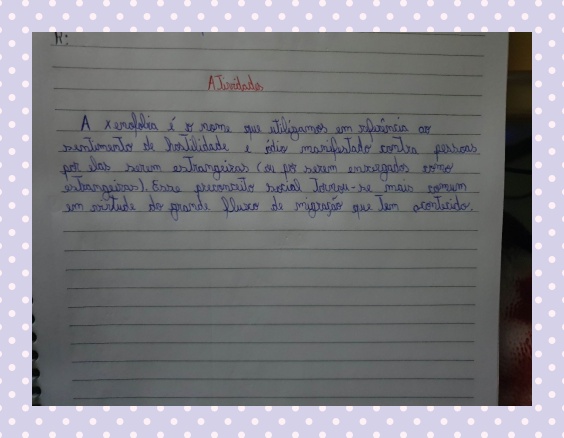 R:
Atividades
A xenofobia é o nome que utilizamos em referência ao
sentimento de hostilidade e ódio manifestado contra pessoas
por elas serem estrangeiras (ou por serem enxergados como
estrangeiras). Esse preconceito social tornou-se mais comum
em virtude do grande fluxo de migração que tem acontecido.